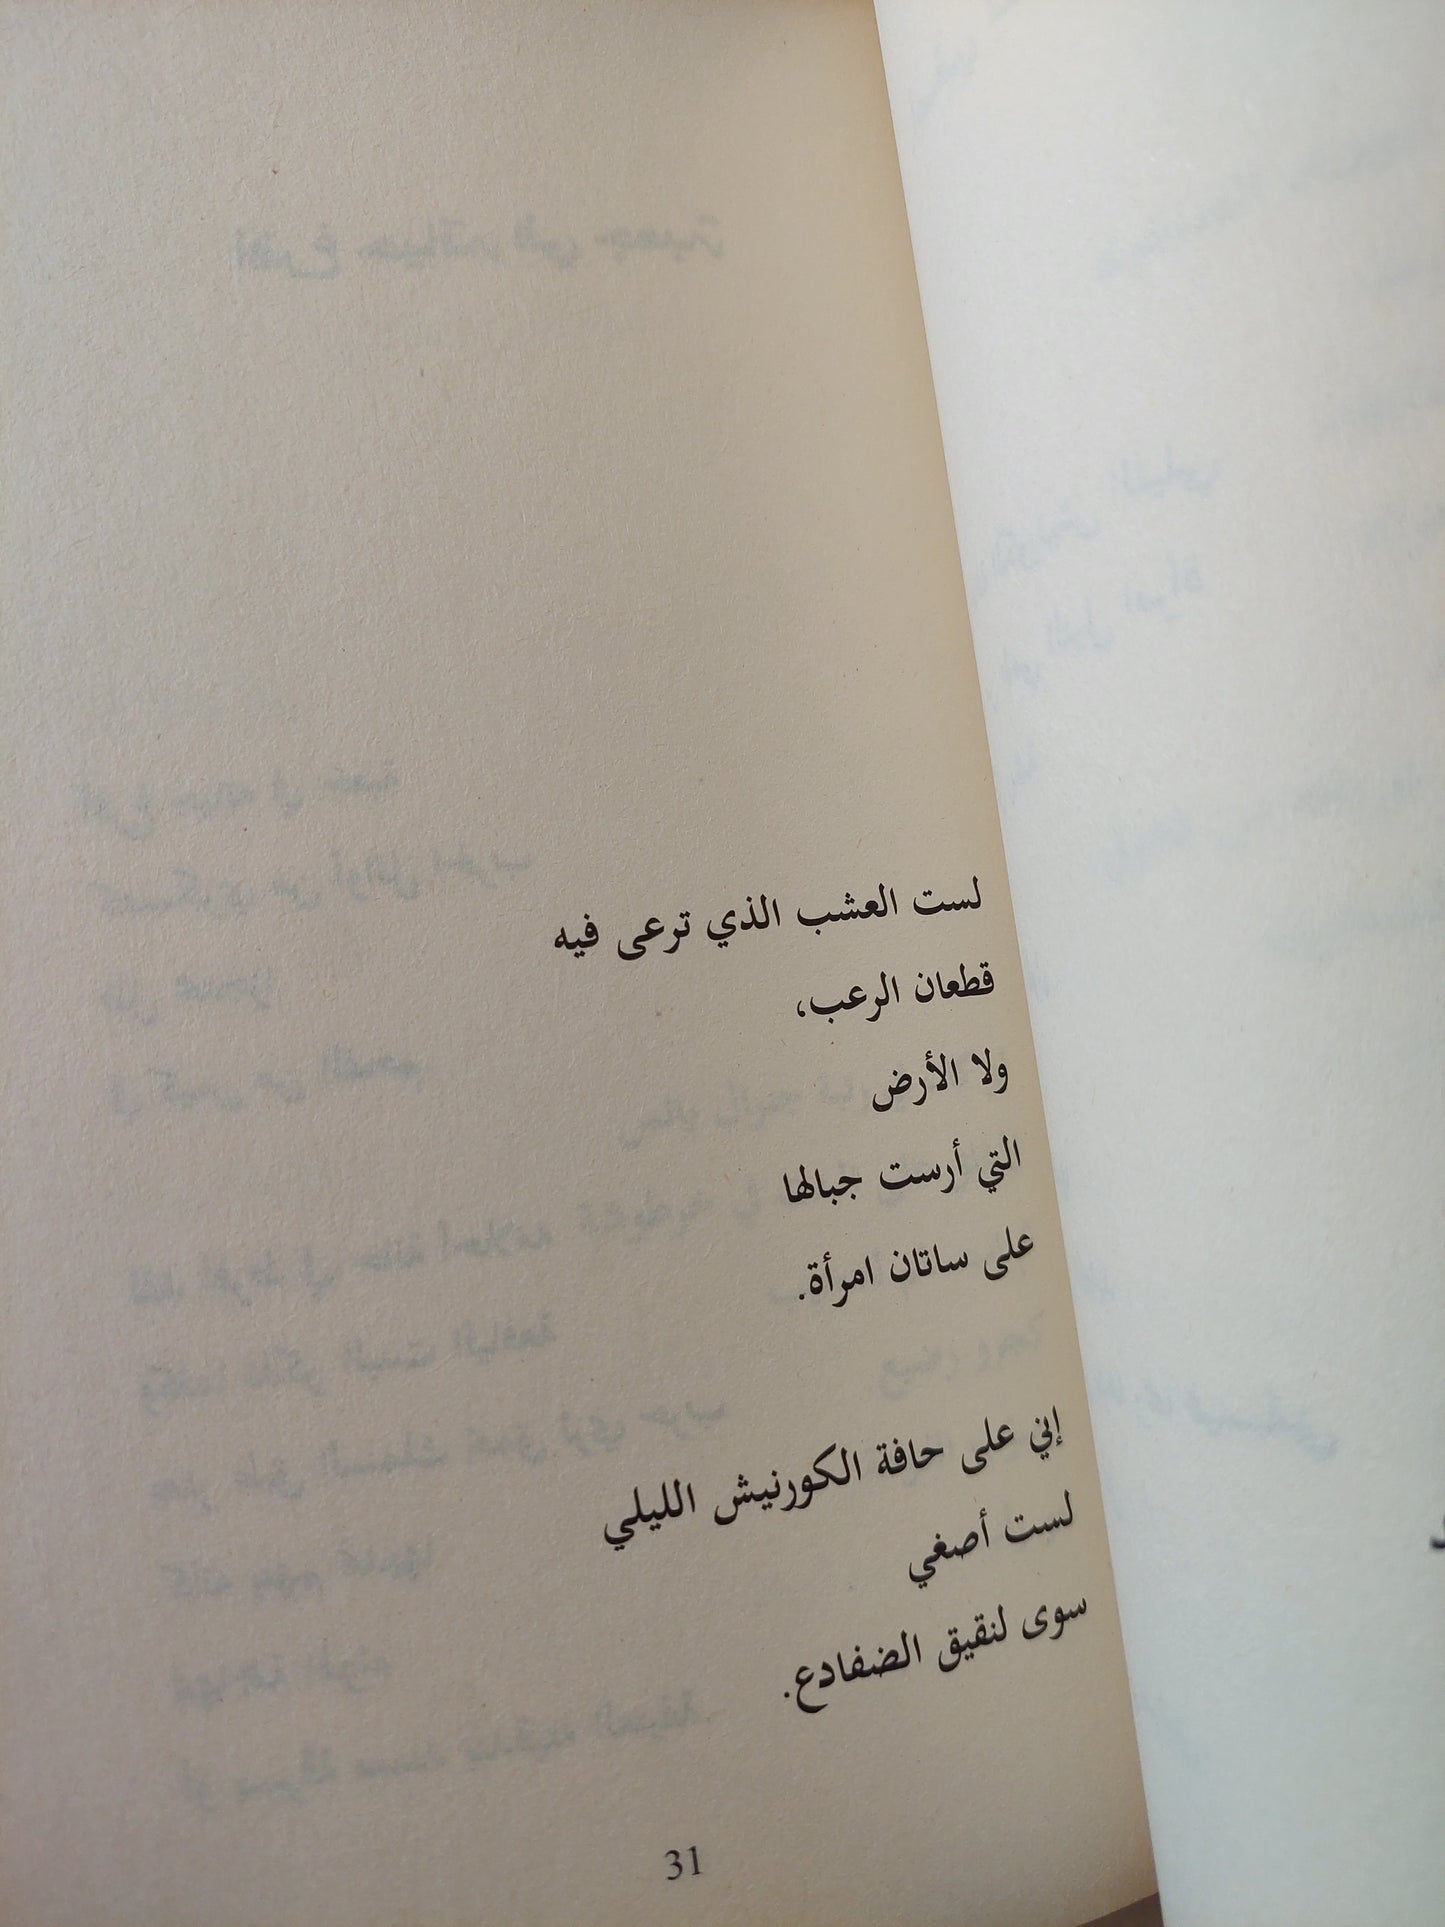 لست العشب الذي ترعى فيه
قطعان الرعب،
ولا الأرض
التي أرست جبالها
على ساتان امرأة.
إني على حافة الكورنيش الليلي
لست أصغي
سوى لنقيق الضفادع.
31